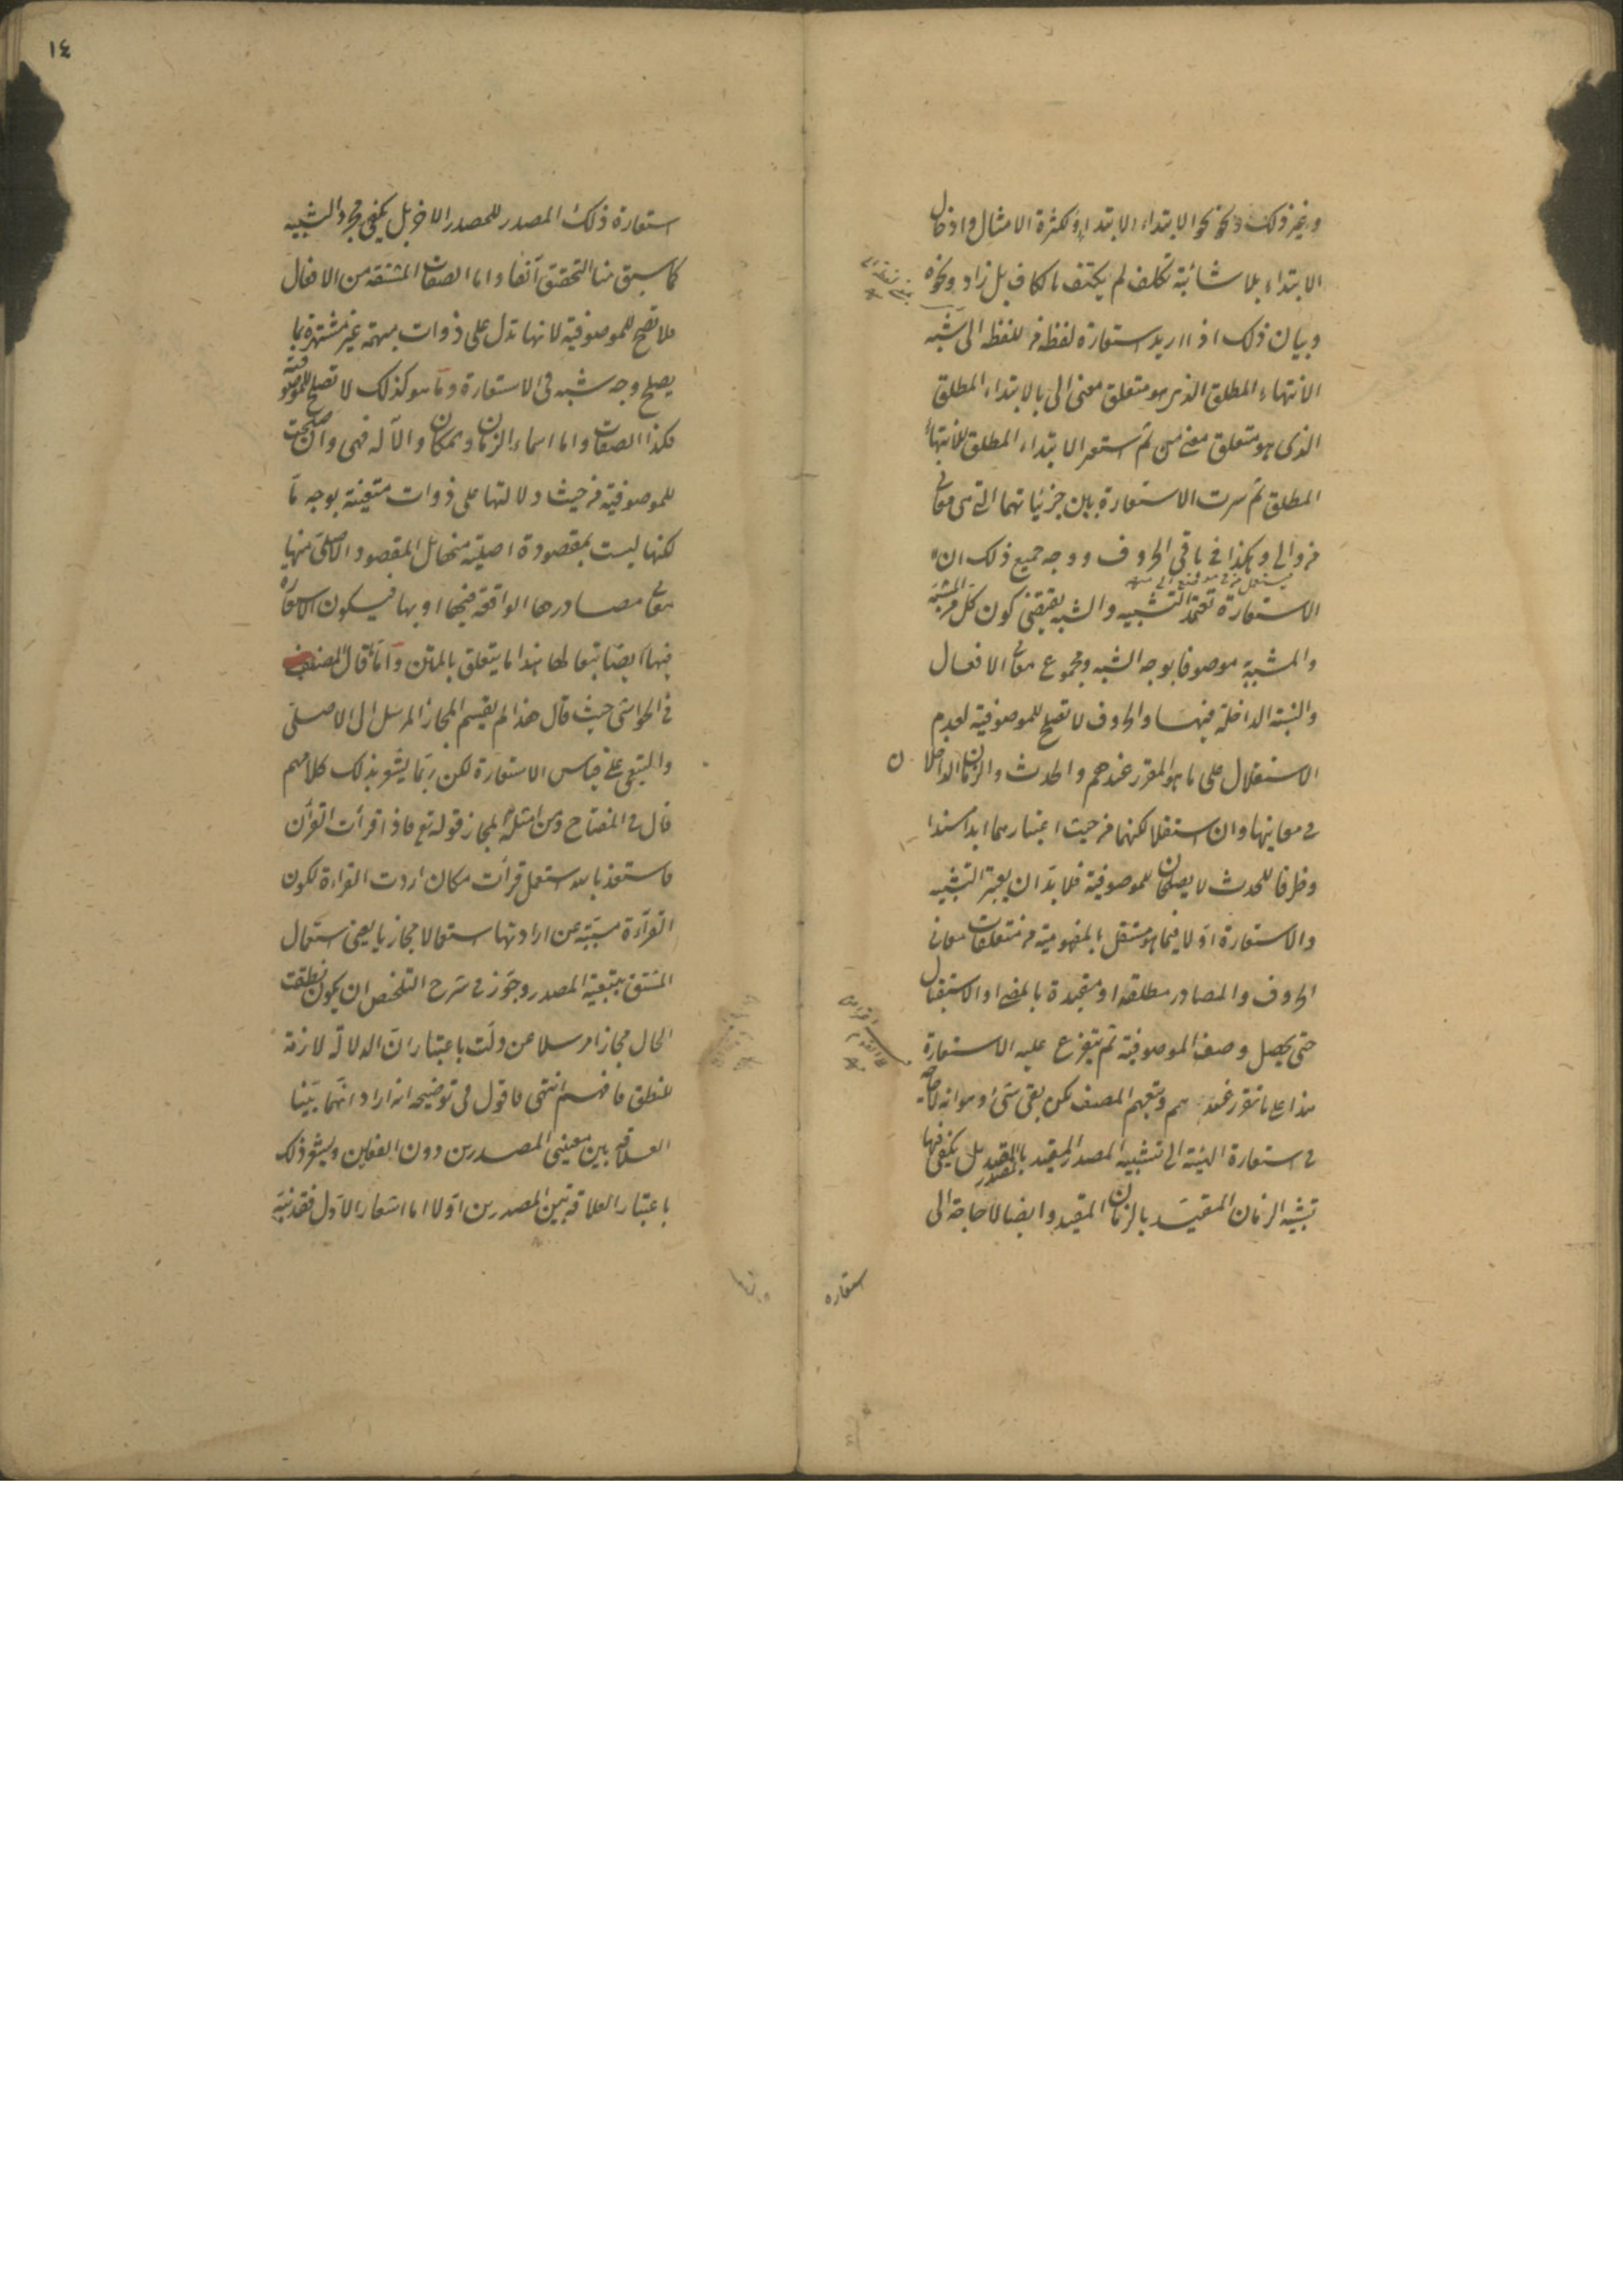 وغير ذلك ونحو نحو الابتداء الابتداء ولكثرة الامثال وادخال
الابتداء بلا شائبة تكلف لم يكتف بالكاف بل زاد ونحوه
وبيان ذلك اذا اريد استعارة لفظ من للفظ الى شبه
الانتهاء المطلق الذى هو متعلق معنى الى بالابتداء المطلق
الذى هو متعلق معنى من ثم استعير الابتداء المطلق للانتهاء
المطلق ثم سرت الاستعارة بين جزئياتهما التى هى معانى
من والى وهكذا فى باقى الحروف ووجه جميع ذلك ان
الاستعارة تعتمد التشبيه والشبه يقتضى كون كل من المشبه
والمشبه موصوفا بوجه الشبه ومجموع معانى الافعال
والنسبة الداخلة فيها والحروف لا تصلح للموصوفية لعدم
الاستقلال على ما هو المقرر عندهم والحدث والزمان الداخلا ن
فى معانيها وان استقلا لكنهما من حيث اعتبارهما ابدا مسندا
وظرفا للحدث لا يصلحان للموصوفية فلا بد ان يعتبر التشبيه
والاستعارة اولا فيما هو مستقل بالمفهومية من متعلقات معانى
الحروف والمصادر مطلقة او مقيدة بالمضى او الاستقبال
حتى يحصل وصف الموصوفية ثم يتفرع عليه الاستعارة
هذا على ما تقرر عندهم وتبعهم المصنف لكن بقى شئ وهو انه لا حاجة
فى استعارة الهيئة الى تشبيه المصدر المقيد بالمصدر المقيد بل يكفى فيها
تشبيه الزمان المقيد بالزمان المقيد وايضا لا حاجة الى
استعارة
١٤
استعارة ذلك المصدر للمصدر الاخر بل يكفى مجرد التشبيه
كما سبق منا التحقيق آنفا واما الصفات المشتقة من الافعال
فلا تصلح للموصوفية لانها تدل على ذوات مبهمة غير مشتهرة بما
يصلح وجه شبه فى الاستعارة وما هو كذلك لا تصلح للموصوفية
فكذا الصفات واما اسماء الزمان والمكان والآلة فهى وان صلحت
للموصوفية من حيث دلالتها على ذوات متعينة بوجه ما
لكنها ليست بمقصودة اصلية منها بل المقصود الاصلى منها
معانى مصادرها الواقعة فيها او بها فيكون الاستعارة
فيها ايضا تبعا لها هذا ما يتعلق بالمتن واما ما قال المصنف
فى الحواشى حيث قال هذا لم يقسم المجاز المرسل الى الاصلى
والتبعى على قياس الاستعارة لكن ربما يشعر بذلك كلامهم
قال فى المفتاح ومن امثلة المجاز قوله تع فاذا قرأت القرآن
فاستعذ بالله استعمل قرأت مكان اردت القراءة لكون
القراءة مسببة عن ارادتها استعمالا مجازيا يعنى استعمال
المشتق بتبعية المصدر وجوز فى شرح التلخيص ان يكون نطقت
الحال مجازا مرسلا عن دلت باعتبار ان الدلالة لازمة
للنطق فافهم انتهى فاقول فى توضيحه انه اراد انهما بينا
العلاقة بين معنيى المصدرين دون الفعلين ويشعر ذلك
باعتبار العلاقة بين المصدرين اولا اما اشعار الاول فقد نبه